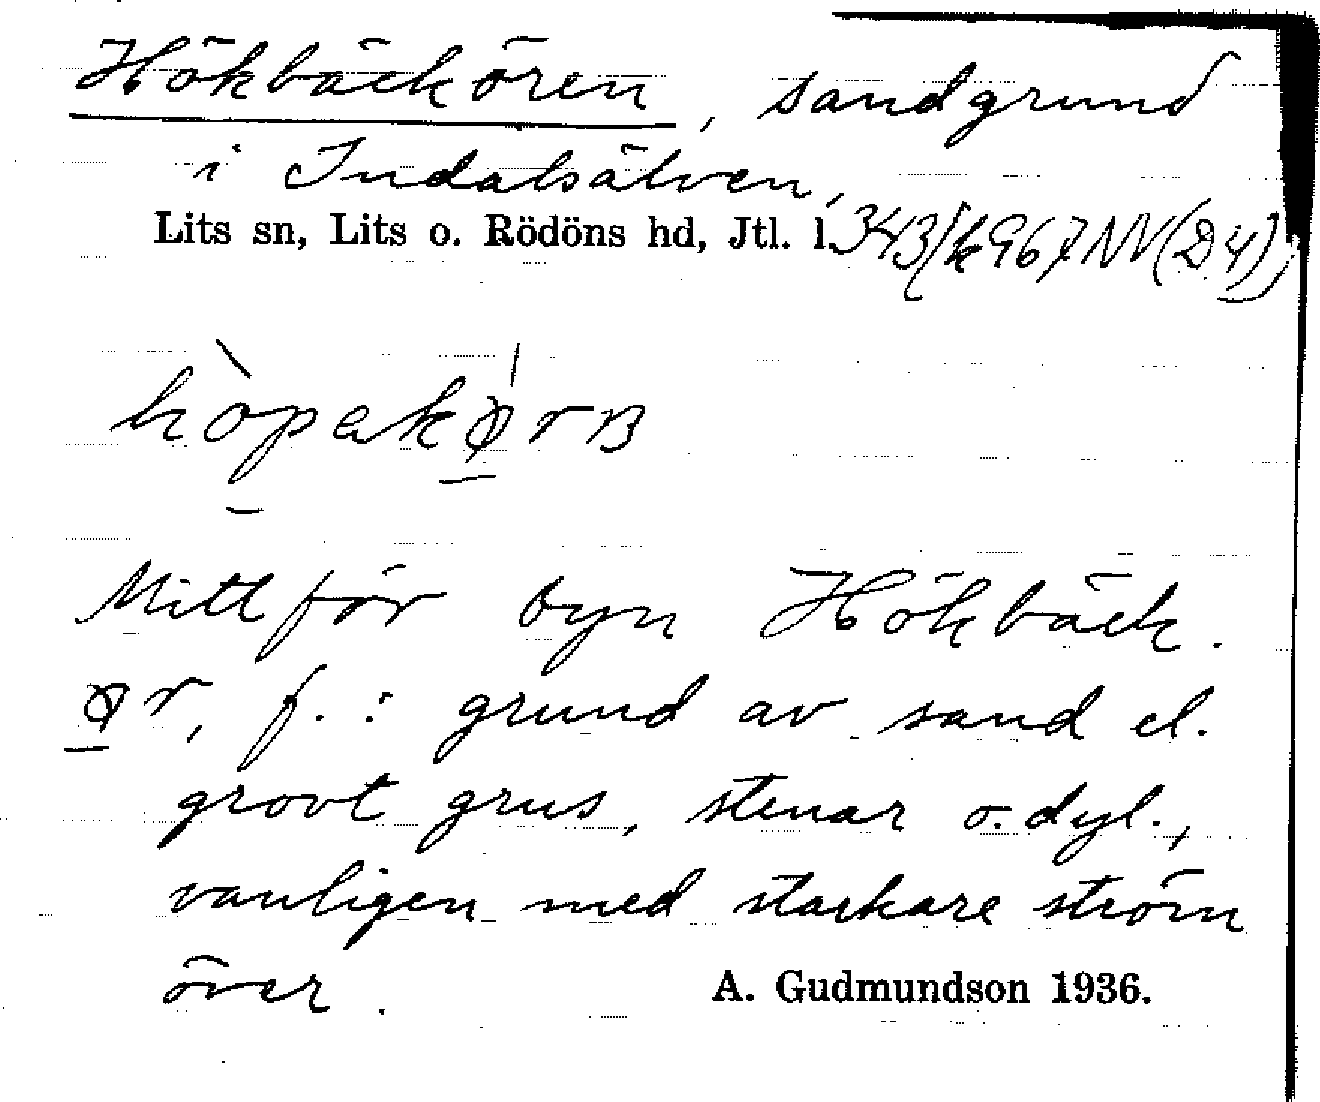 Hökbäckören, sandgrund
i Indalsälven,
Lits sn, Lits o. Rödöns hd, Jtl. l. 343/k967NV(D4)
Mitt för byn Hökbäck.
f.: grund av sand el.
grovt grus, stenar o. dyl.,
vanligen med starkare ström
över.
A. Gudmundson 1936.